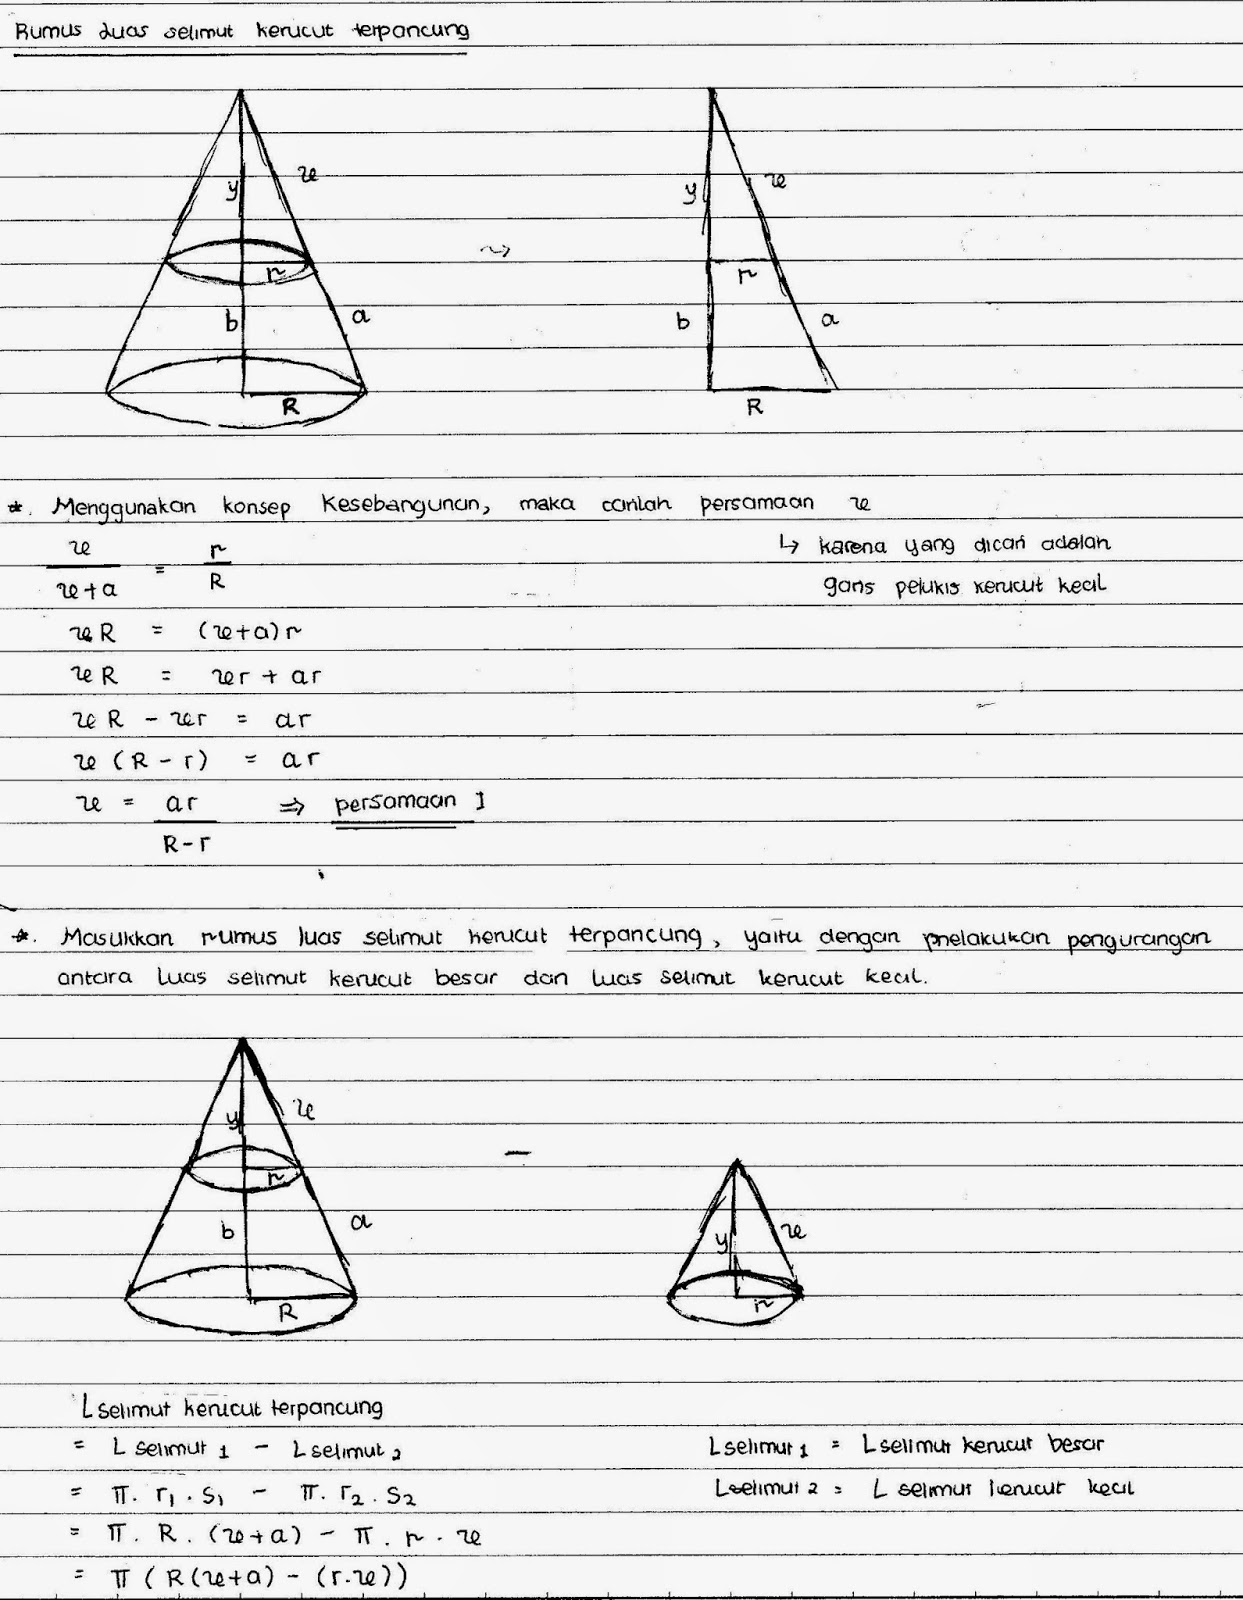 Rumus Luas selimut kerucut terpancung
y x
r
b a
R
y x
r
b a
R
*. Menggunakan konsep Kesebangunan, maka carilah persamaan x
↳ karena yang dicari adalah
garis pelukis kerucut kecil
x / x+a = r / R
xR = (x+a)r
xR = xr + ar
xR - xr = ar
x (R - r) = ar
x = ar / R-r ⇒ persamaan I
*. Masukkan rumus luas selimut kerucut terpancung, yaitu dengan melakukan pengurangan
antara Luas selimut kerucut besar dan Luas selimut kerucut kecil.
y x
r
b a
R
-
y x
r
L selimut kerucut terpancung
= L selimut 1 - L selimut 2
L selimut 1 = L selimut kerucut besar
= π. r₁ . s₁ - π. r₂ . s₂
L selimut 2 = L selimut kerucut kecil
= π . R . (x+a) - π . r . x
= π ( R(x+a) - (r.x))